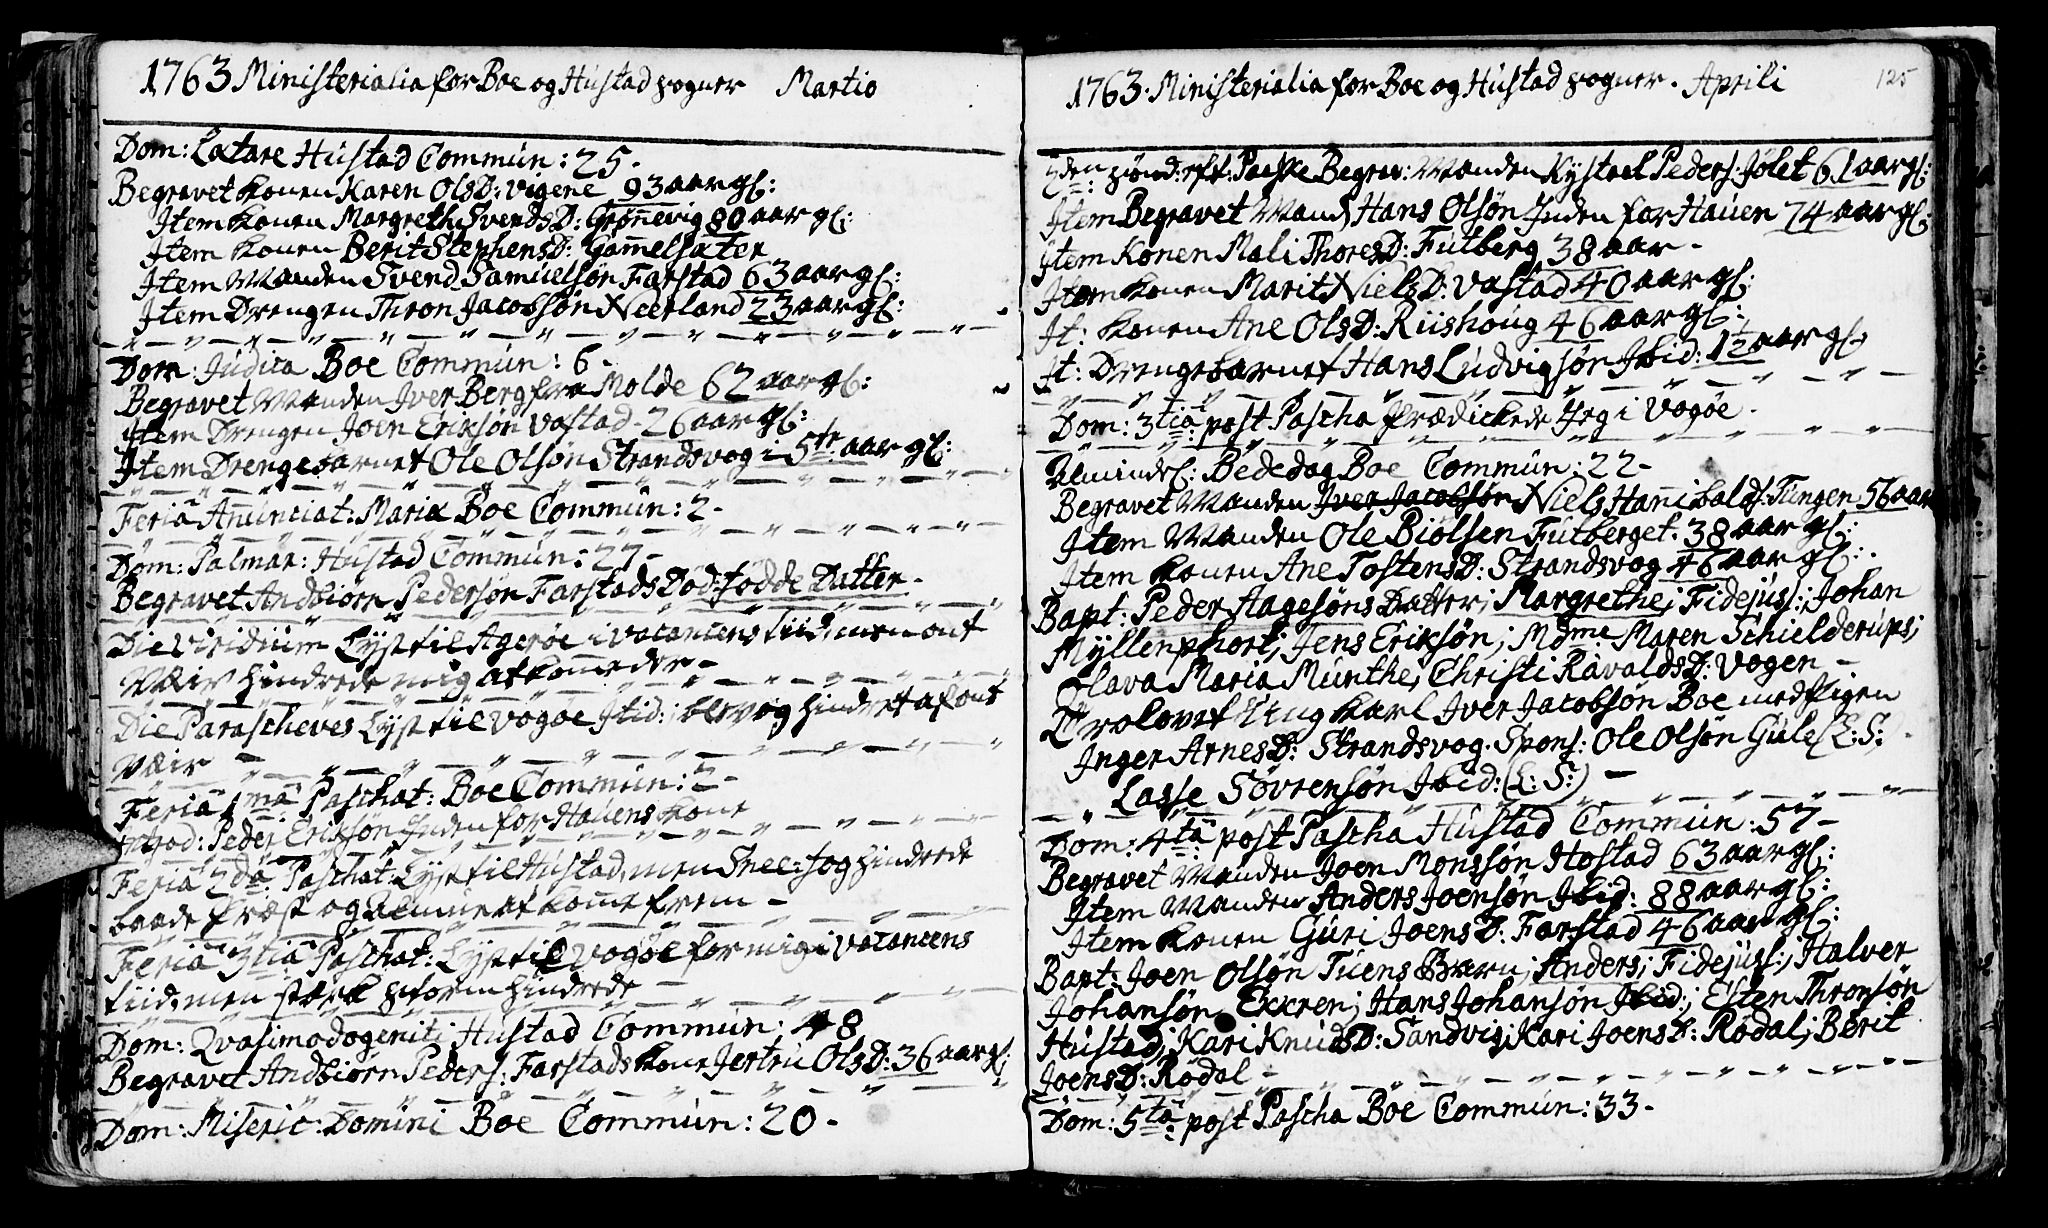 1763 Ministerialia for Boe og Hustad sogner Martio
Dom: Lætare Hustad Commun: 25.
Begravet konen Karen OlsD: Vigene 93 aar gl:
Item konen Margrethe SvendsD: Grønnevig 80 aar gl:
Item konen Berit StephensD: Gamelsæter
Item Manden Svend Samuelsøn Farstad 63 aar gl:
Item Drengen Thron Jacobsøn Neerland 23 aar gl:
Dom: Judica Boe Commun: 6-
Begravet Manden Iver Berg fra Molde 62 aar gl:
Item Drengen Joen Eriksøn Vastad - 26 aar gl:
Item Drengebarnet Ole Olsøn Strandsvog i 5te aar gl:
Feria Anunciat: Mariæ Boe Commun: 2-
Dom: Palmar: Hustad Commun: 27-
Begravet Andbiørn Pedersøn Farstads Død-fødde Datter-
Die Viridium Lyst til Agerøe i Vacancens tiid, men ont
Væir hindrede mig at komme der-
Die Parascheves Lyst til Vogøe Itid: blev og hindret af ont
Væir -
Feria 1ma Paschat: Boe Commun: 2-
Introd: Peder Eriksøn Inden for Havens kone
Feria 2da Paschat: Lyst til Hustad, men Snee-fog hindrede
baade Præst og Almue at komme frem -
Feria 3tia Paschat: Lyst til Vogøe for mig i Vacancens
tiid, men stærk storm hindrede -
Dom: Qvasimodogeniti Hustad Commun: 48
Begravet Andbiørn Peders: Farstads kone Jertru OlsD: 36 aar gl:
Dom: Miseric: Domini Boe Commun: 20-
1763. Ministerialia for Boe og Hustad sogner. Aprili 125
2den sønd: eft: Paaske Begrav: Manden Kystael Peders: Jølet 61 aar gl:
Item Begravet Mand Hans Olsøn Inden for Haven 74 aar gl:
Item Konen Mali ThoresD: Futberg 38 aar -
Item konen Marit NielsD: Vastad 40 aar gl:
It: konen Ane OlsD: Riishoug 46 aar gl:
It: Drengebarnet Hans Ludvigsøn Ibid: 1½ aar gl.
Dom: 3tia post Pascha Prædickede Jeg i Vogøe.
Almindel: Bededag Boe Commun: 22-
Begravet Manden Iver Jacobsøn Niels Hanibalds: Tungen 56 aar
Item Manden Ole Biølsen Futberget. 38 aar gl:
Item konen Ane TostensD: Strandsvog 46 aar gl:
Bapt: Peder Aagesøns Datter; Margrethe; Fidejuss:; Johan
Myllenphort; Jens Eriksøn; Mdme Maren Schielderups;
Olava Maria Munthe; Christi RavaldsD: Vogen -
Trolovet Ung karl Iver Jacobsøn Boe med Pigen
Inger ArnesD: Strandsvog. Spons: Ole Olsøn Gule (L:S:).
Lasse Søvrensøn Ibid: (L:S:) -
Dom: 4ta post Pascha Hustad Commun: 57-
Begravet Manden Joen Monssøn Hostad 63 aar gl:
Item Manden Anders Joensøn Ibid: 88 aar gl:
Item konen Guri JoensD: Farstad 46 aar gl:
Bapt: Joen Olsøn Tuens Barn; Anders; Fidejuss:; Halver
Johansøn Exren; Hans Johansøn Ibid:; Esten Thronsøn
Hustad; Kari KnudsD: Sandvig; Kari JoensD: Rødal; Berit
JoensD: Rødal -
Dom: 5ta post Pascha Boe Commun: 33-